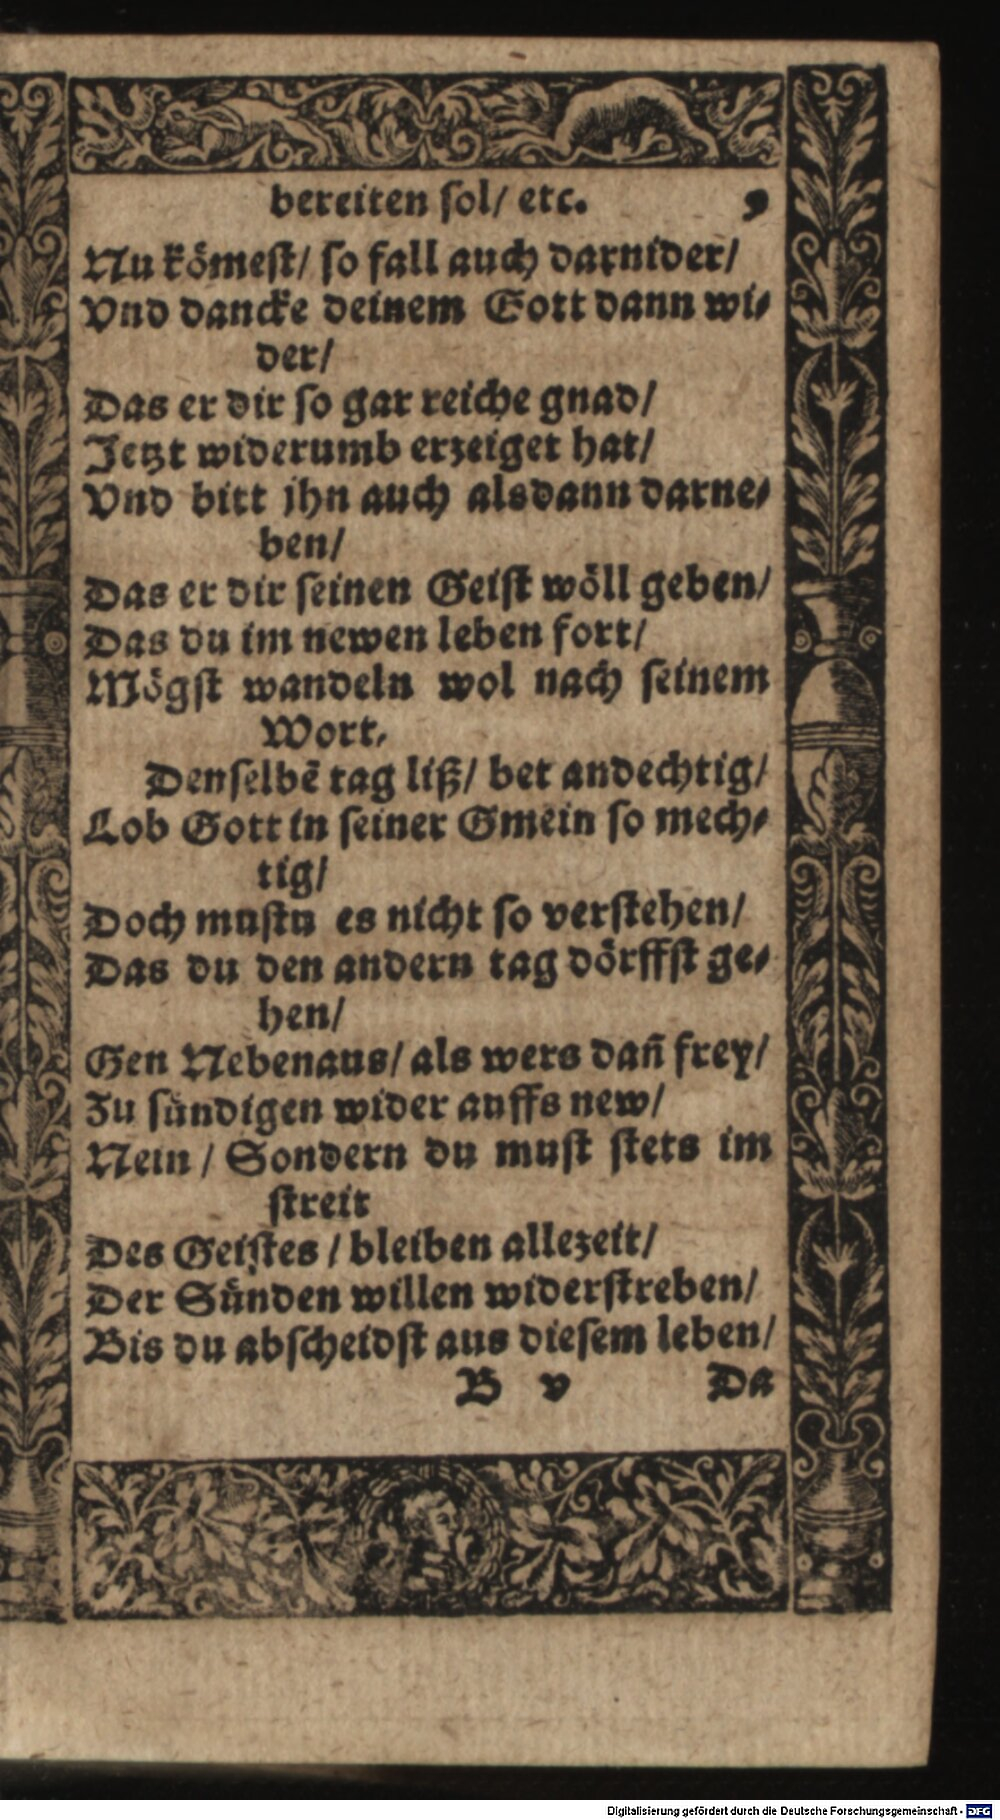 bereiten ſol/ etc. 9
Nu kömeſt/ ſo fall auch darnider/
Vnd dancke deinem Gott dann wi⸗
der/
Das er dir ſo gar reiche gnad/
Jetzt widerumb erzeiget hat/
Vnd bitt jhn auch alsdann darne⸗
ben/
Das er dir ſeinen Geiſt wöll geben/
Das du im newen leben fort/
Mögſt wandeln wol nach ſeinem
Wort.
Denſelbē tag liß/ bet andechtig/
Lob Gott in ſeiner Gmein ſo mech⸗
tig/
Doch muſtu es nicht ſo verſtehen/
Das du den andern tag dörffſt ge⸗
hen/
Gen Nebenaus/ als wers dañ frey/
Zu ſündigen wider auffs new/
Nein/ Sondern du muſt ſtets im
ſtreit
Des Geiſtes/ bleiben allezeit/
Der Sünden willen widerſtreben/
Bis du abſcheidſt aus dieſem leben/
B v Da
Digitalisierung gefördert durch die Deutsche Forschungsgemeinschaft - DFG